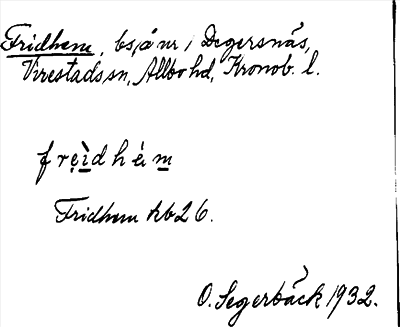 Fridhem, bs, å nr 1 Degersnäs,
Virestads sn, Allbo hd, Kronob. l.
freidhem
Fridhem hb 26.
O. Segerbäck 1932.